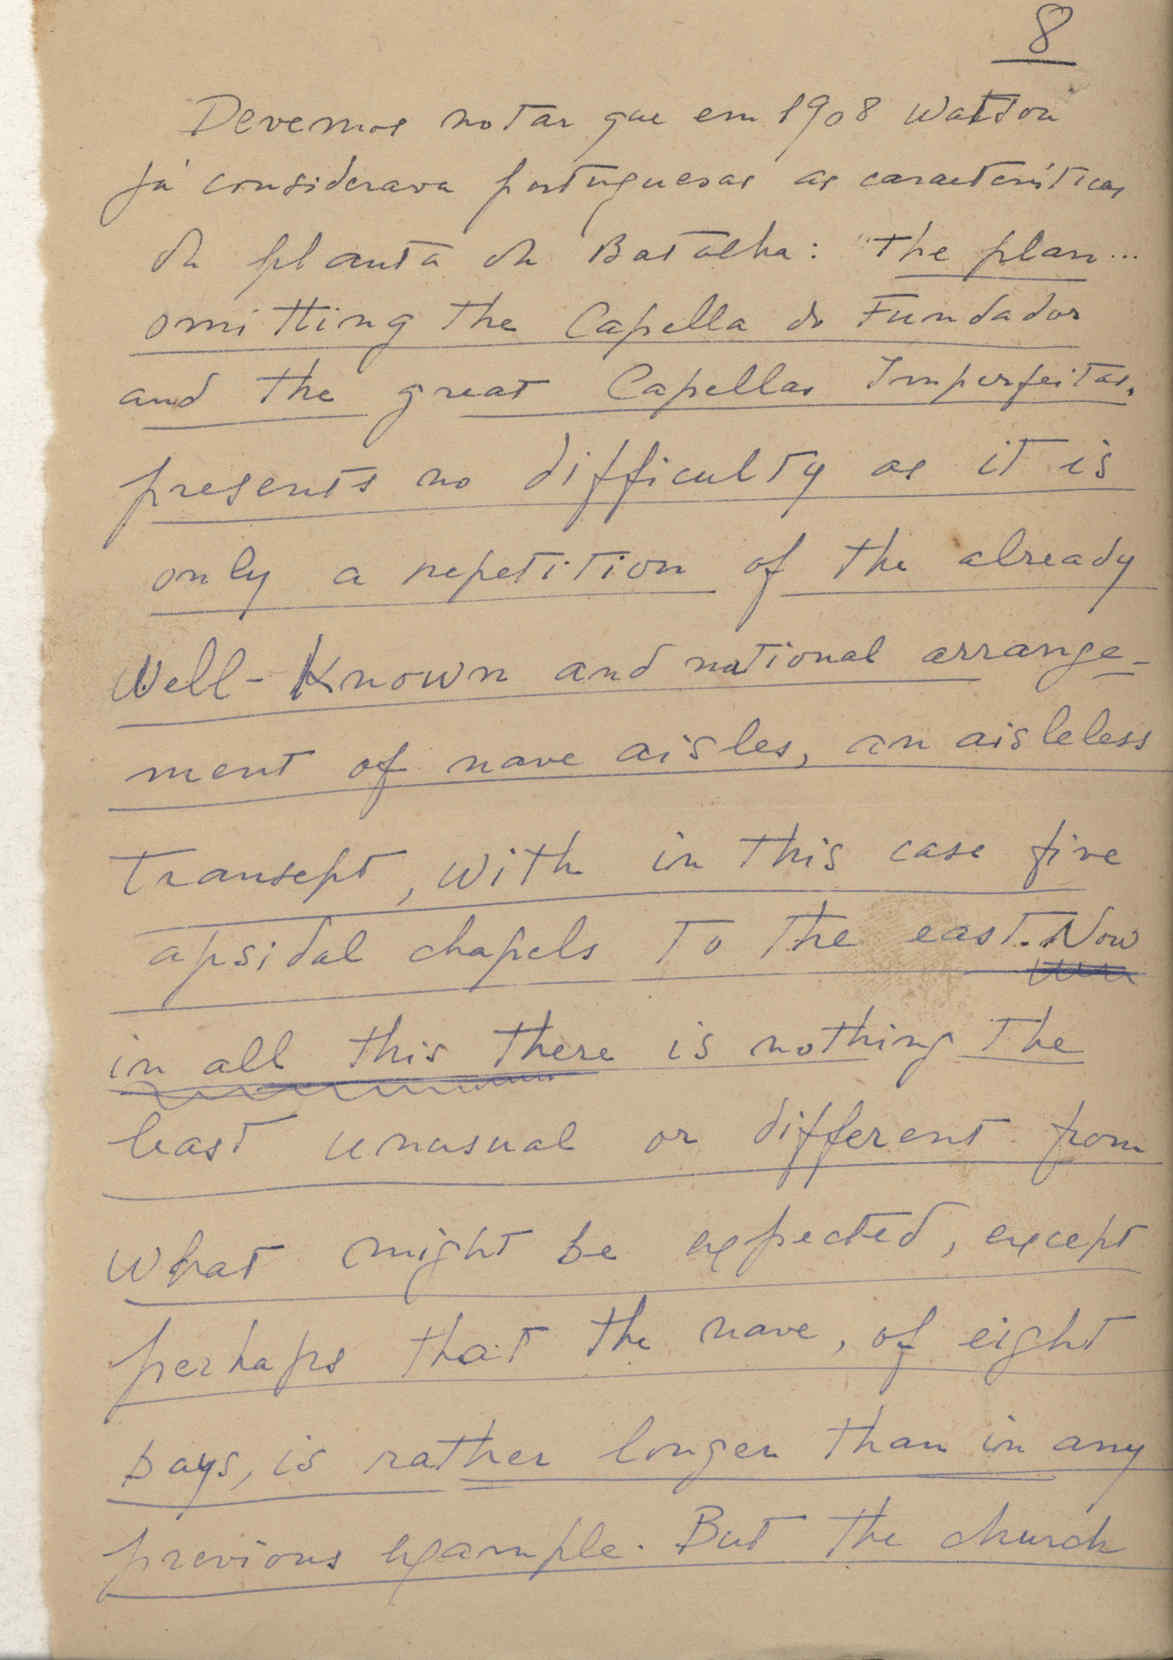 8
Devemos notar que em 1908 Watson
já considerava portuguesas as características
da planta da Batalha: "The plan...
omitting the Capella do Fundador
and the great Capellas Imperfeitas,
presents no difficulty as it is
only a repetition of the already
Well-Known and national arrange-
ment of nave aisles, an aisleless
transept, with in this case five
apsidal chapels to the east. Now
in all this there is nothing the
least unusual or different from
what might be expected, except
perhaps that the nave, of eight
bays, is rather longer than in any
previous example. But the church